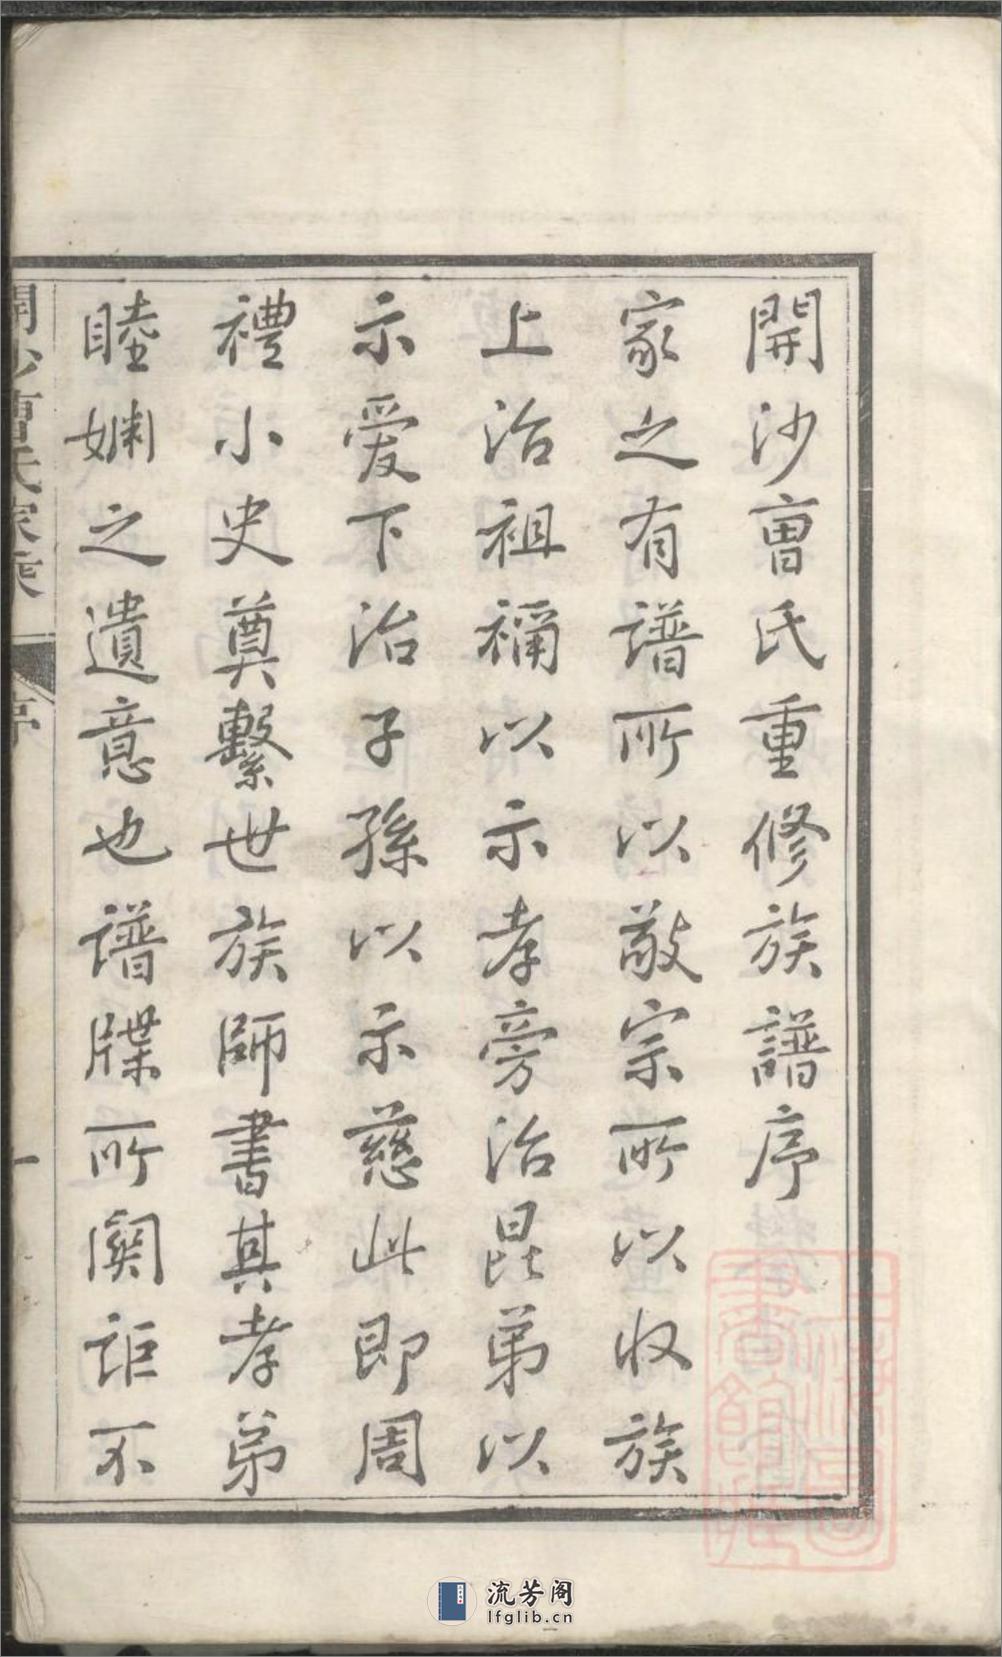 開沙曺氏重修族譜序
家之有譜所以敬宗所以收族
上治祖禰以示孝旁治昆弟以
示爱下治子孫以示慈此即周
禮小史奠繫世族師書其孝弟
睦婣之遺意也譜牒所関詎不
開沙曺氏家乗
序
一
上海圖書館藏
流芳阁
lfglib.cn